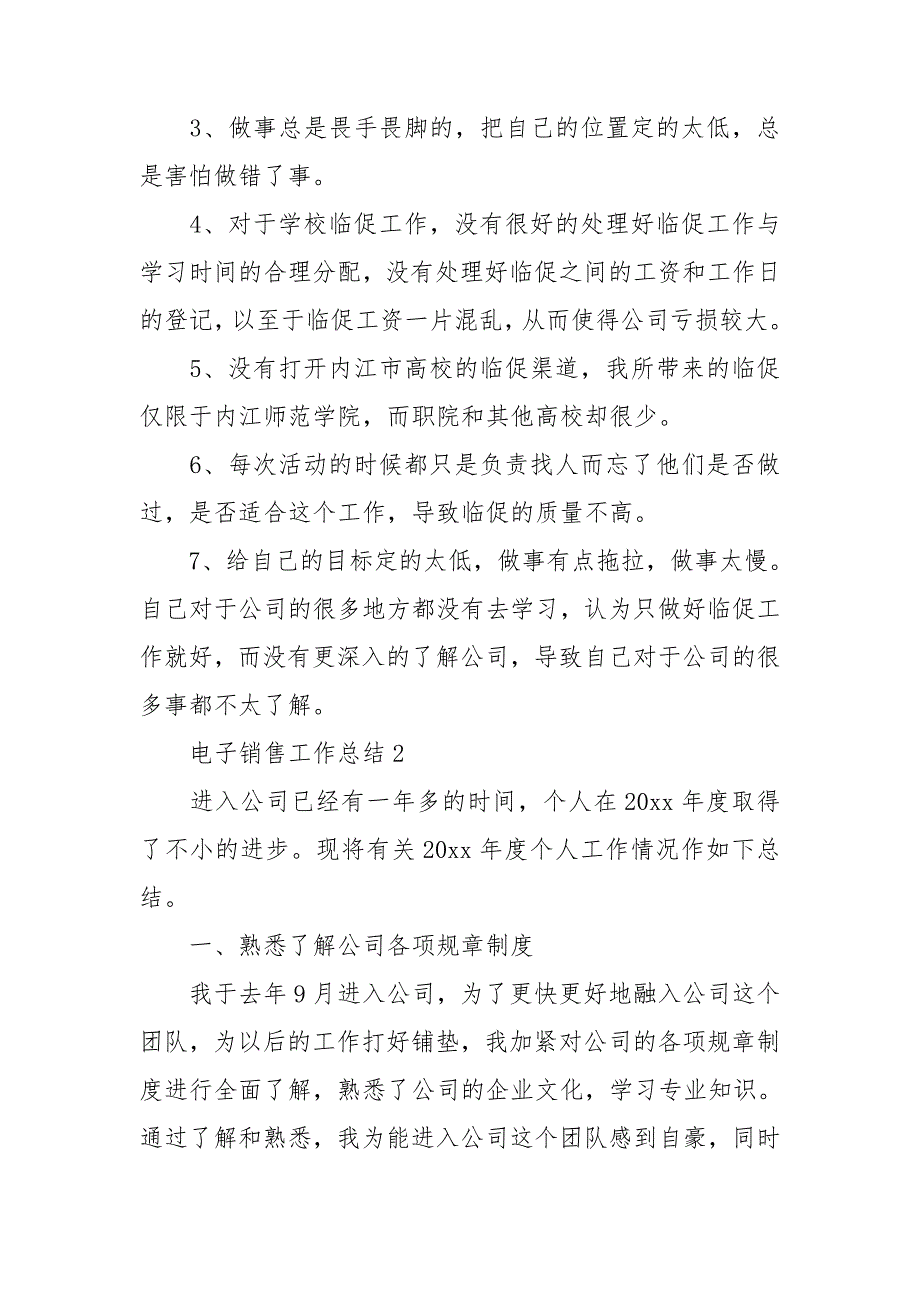 3、做事总是畏手畏脚的，把自己的位置定的太低，总
是害怕做错了事。
4、对于学校临促工作，没有很好的处理好临促工作与
学习时间的合理分配，没有处理好临促之间的工资和工作日
的登记，以至于临促工资一片混乱，从而使得公司亏损较大。
5、没有打开内江市高校的临促渠道，我所带来的临促
仅限于内江师范学院，而职院和其他高校却很少。
6、每次活动的时候都只是负责找人而忘了他们是否做
过，是否适合这个工作，导致临促的质量不高。
7、给自己的目标定的太低，做事有点拖拉，做事太慢。
自己对于公司的很多地方都没有去学习，认为只做好临促工
作就好，而没有更深入的了解公司，导致自己对于公司的很
多事都不太了解。
电子销售工作总结2
进入公司已经有一年多的时间，个人在20xx年度取得
了不小的进步。现将有关20xx年度个人工作情况作如下总
结。
一、熟悉了解公司各项规章制度
我于去年9月进入公司，为了更快更好地融入公司这个
团队，为以后的工作打好铺垫，我加紧对公司的各项规章制
度进行全面了解，熟悉了公司的企业文化，学习专业知识。
通过了解和熟悉，我为能进入公司这个团队感到自豪，同时